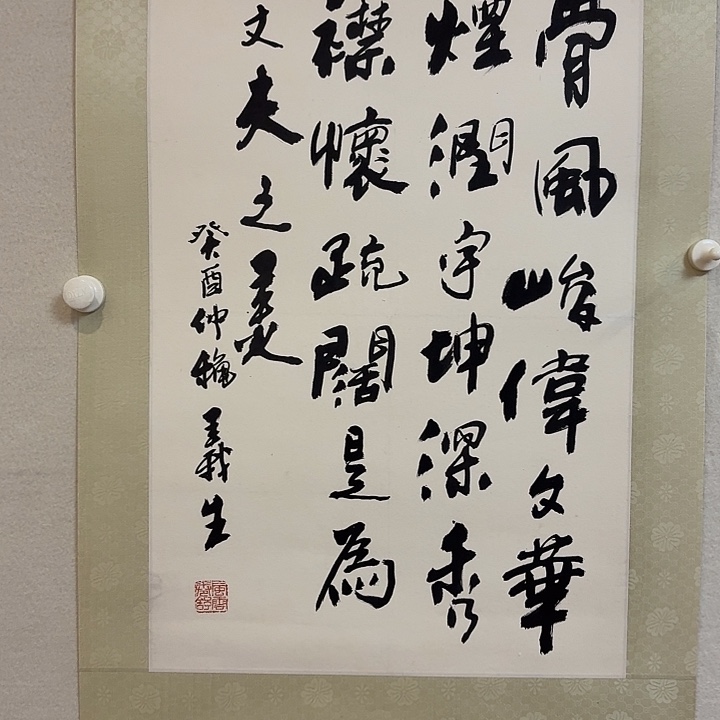 骨風峻偉文華
潤宇坤深秀
襟懷疏闊是為
丈夫之美
癸酉仲穐義生